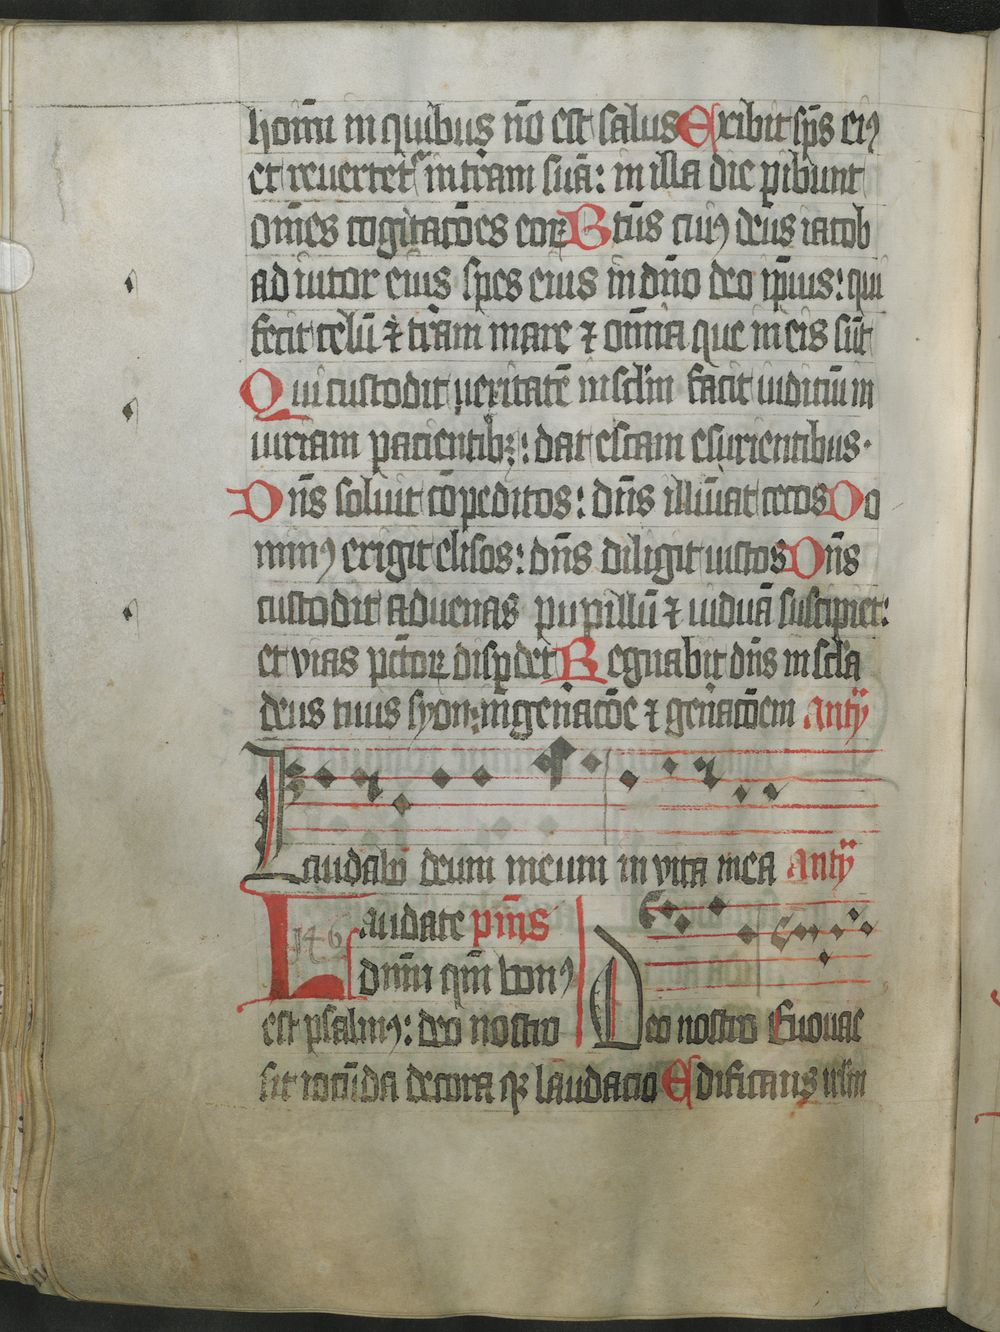 hoīm in quibus nō est salus Exibit sp̄s eiꝰ
et reuertet᷑ in tr̄am suā: in illa die ꝑibunt
om̄es cogitacōes eoꝝ Bt̄us cuiꝰ deus iacob
adiutor eius spes eius in dn̄o deo ip̄ius: qui
fecit celū ⁊ tr̄am mare ⁊ om̄ia que in eis sūt
Qui custodit ueritatē in sclm̄ facit iudiciū in
iuriam pacientibꝫ: dat escam esurientibus.
Dn̄s soluit cōpeditos: dn̄s illūiat cecos Do
minꝰ erigit elisos: dn̄s diligit iustos Dn̄s
custodit aduenas pupillū ⁊ uiduā suscipiet:
et vias pc̄toꝝ disꝑdet Regnabit dn̄s in scl̄a
deus tuus syon: in gen̄acōe ⁊ gen̄acōem Anty
Laudabo deum meum in vita mea Anty
Laudate pm̄s
146
dn̄m qm̄ bonꝰ
est psalmꝰ: deo nostro
Deo nostro Euouae
sit iocūda decora qꝫ laudacio Edificans irlm̄